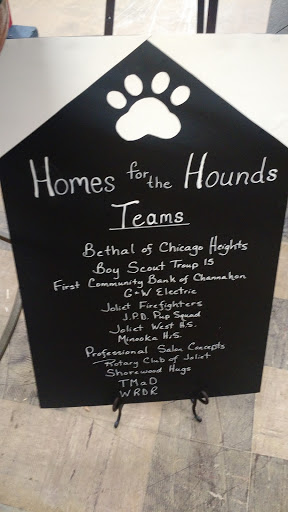 Homes for the Hounds
Teams
Bethal of Chicago Heights
Boy Scout Troup 15
First Community Bank of Channahon
G+W Electric
Joliet Firefighters
J.P.D. Pup Squad
Joliet West H.S.
Minooka H.S.
Professional Salon Concepts
Rotary Club of Joliet
Shorewood Hugs
TMaD
WRDR